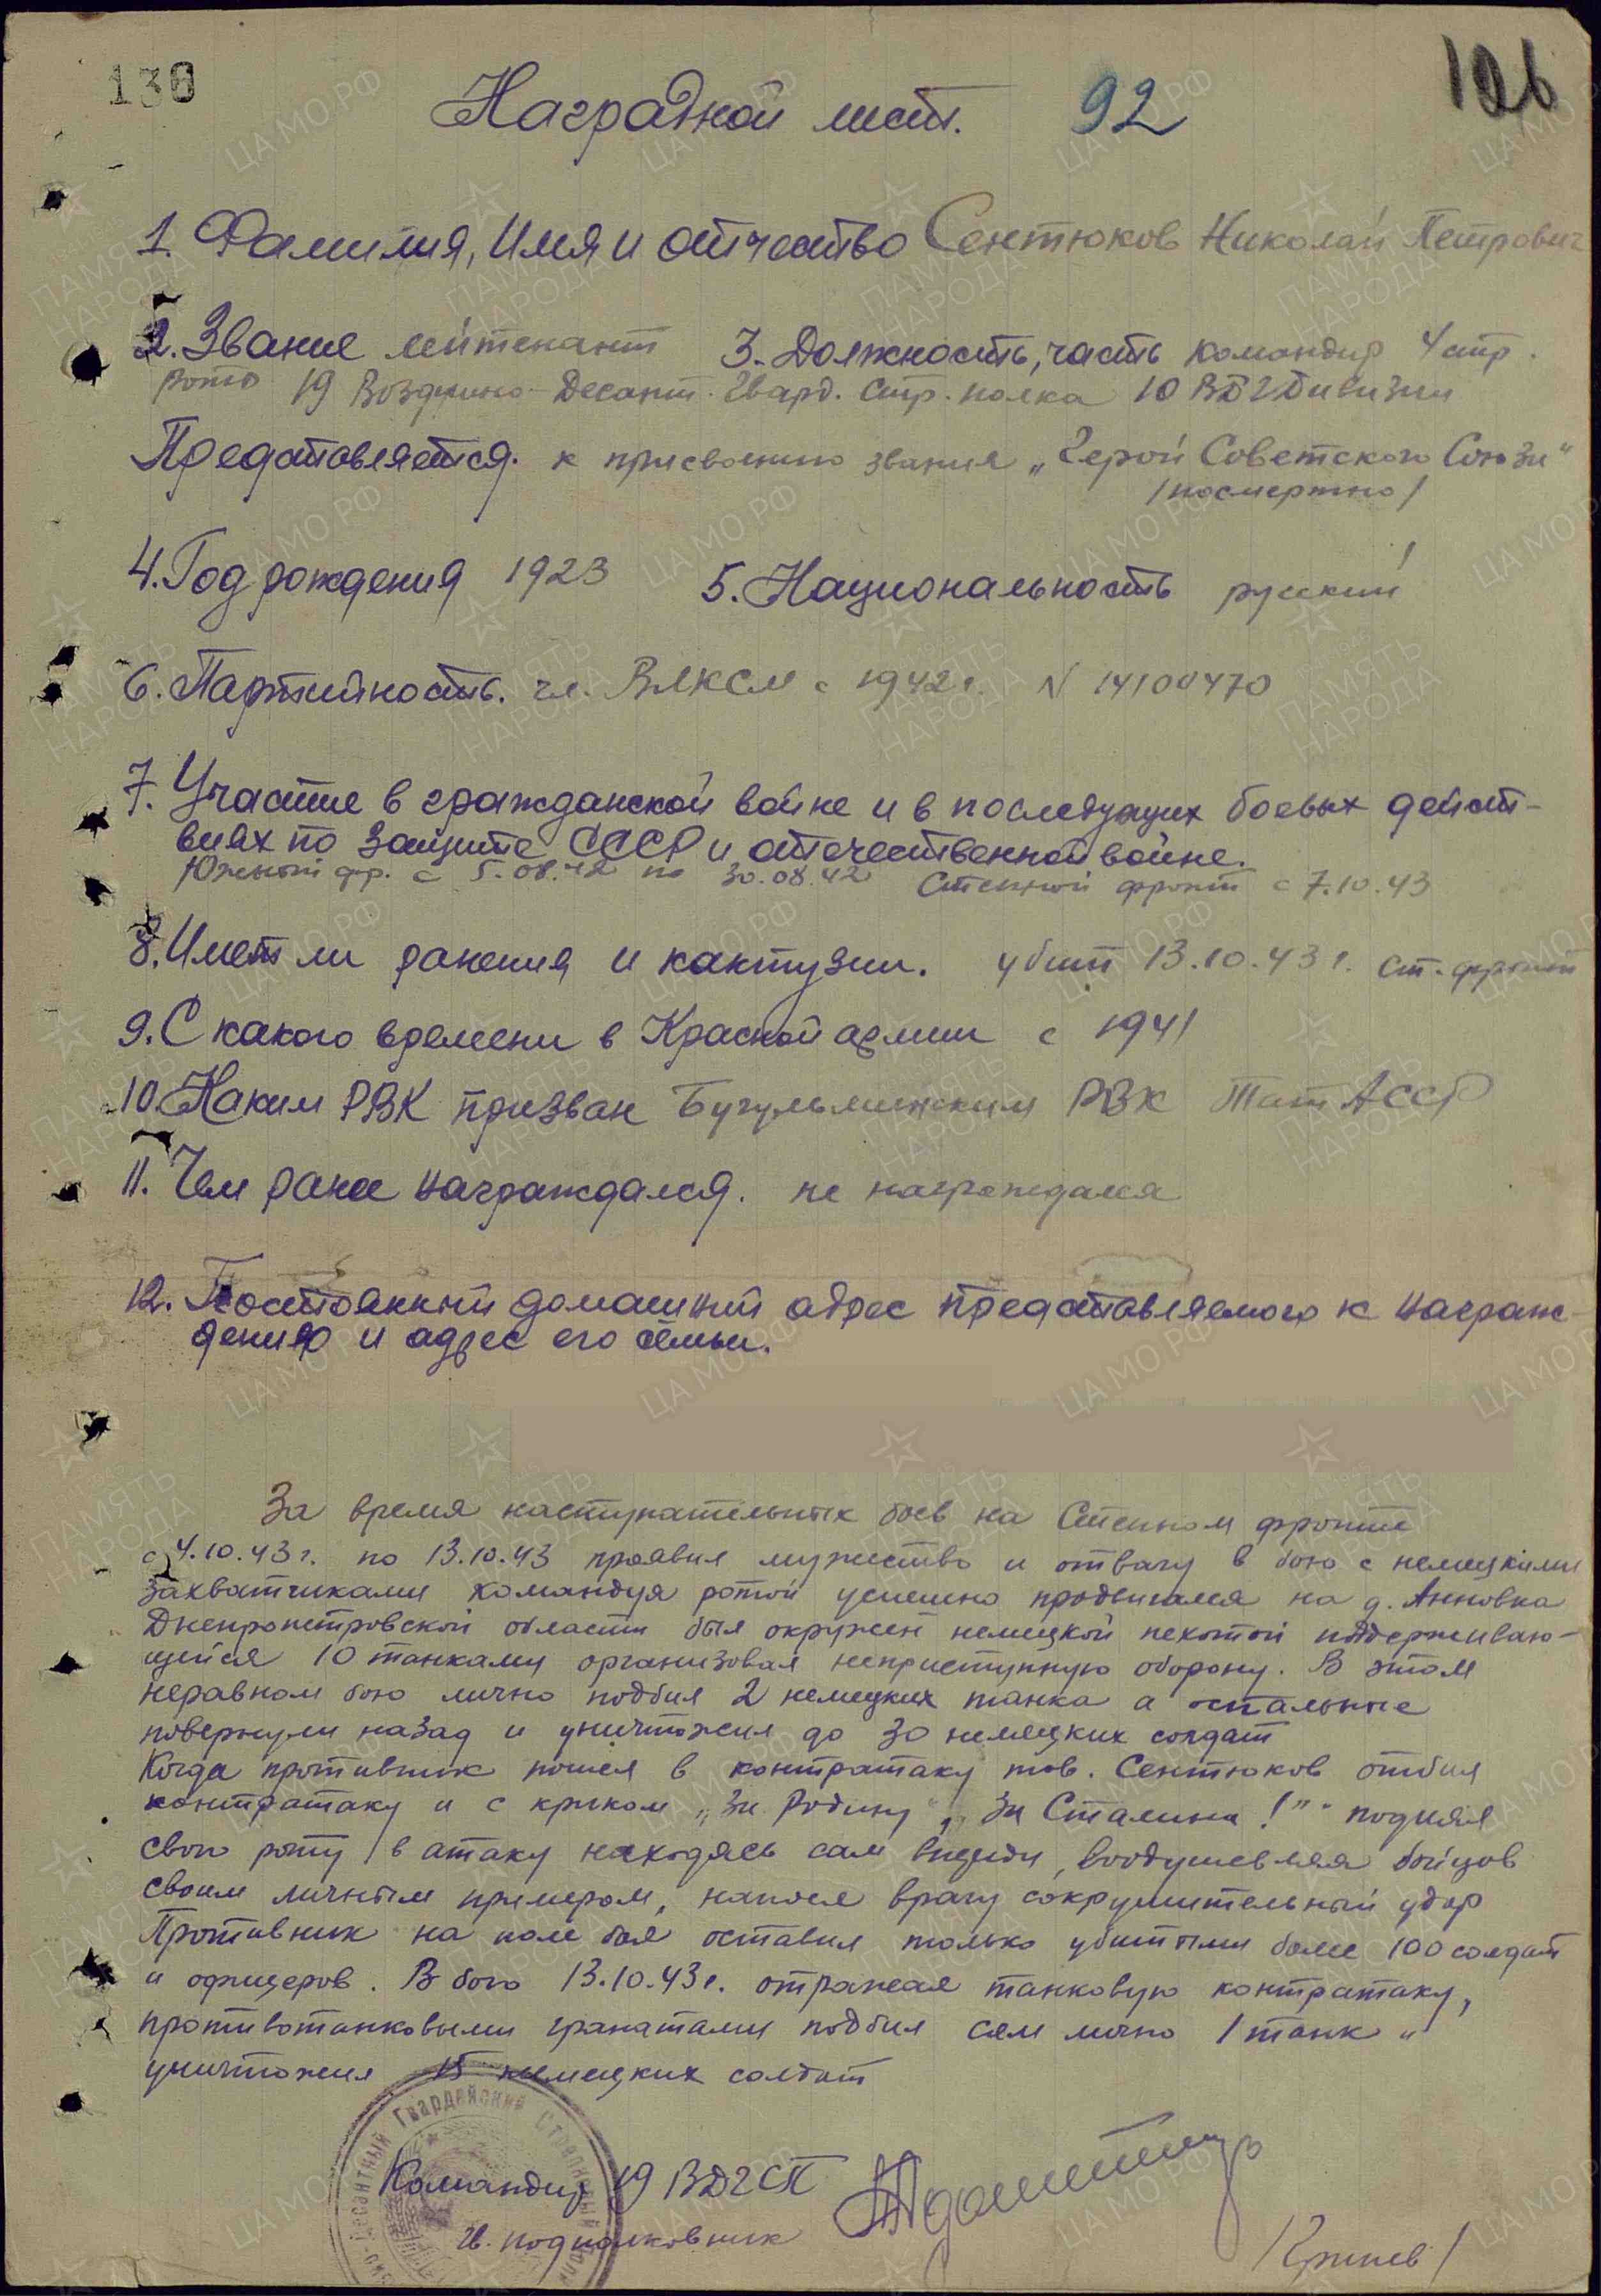 130
Наградной лист.
92
126
1. Фамилия, Имя и отчество Сентюков Николай Петрович
2. Звание лейтенант 3. Должность, часть командир 4 стр.
роты 19 Воздушно-Десант. Гвард. стр. полка 10 ВДГДивизии
Представляется. к присвоению звания „Герой Советского Союза"
/посмертно/
4. Год рождения 1923 5. Национальность русский
6. Партийность. чл. ВЛКСМ с 1942 г. N 14100470
7. Участие в гражданской войне и в последующих боевых дейст-
виях по защите СССР и отечественной войне.
Южный фр. с 5.08.42 по 30.08.42 Степной фронт с 7.10.43
8. Имет ли ранения и кантузии. убит 13.10.43 г. ст. фронт
9. С какого времени в Красной армии с 1941
10. Каким РВК призван Бугульминским РВК ТатАССР
11. Чем ранее награждался. не награждался
12. Постоянный домашний адрес представляемого к награж-
дению и адрес его семьи.
За время наступательных боев на Степном фронте
с 4.10.43 г. по 13.10.43 проявил мужество и отвагу в бою с немецкими
захватчиками командуя ротой успешно продвигался на д. Анновка
Днепропетровской области был окружен немецкой пехотой поддерживаю-
щейся 10 танками организовал неприступную оборону. В этом
неравном бою лично подбил 2 немецких танка а остальные
повернули назад и уничтожил до 30 немецких солдат
Когда противник пошел в контратаку тов. Сентюков отбил
контратаку и с криком „За Родину" „За Сталина!" поднял
свою роту в атаку находясь сам впереди, воодушевляя бойцов
своим личным примером, нанося врагу сокрушительный удар
Противник на поле боя оставил только убитыми более 100 солдат
и офицеров. В бою 13.10.43 г. отражая танковую контратаку,
противотанковыми гранатами подбил сам лично 1 танк и
уничтожил 15 немецких солдат
Командир 19 ВДГСП
гв. подполковник
Гвардейский